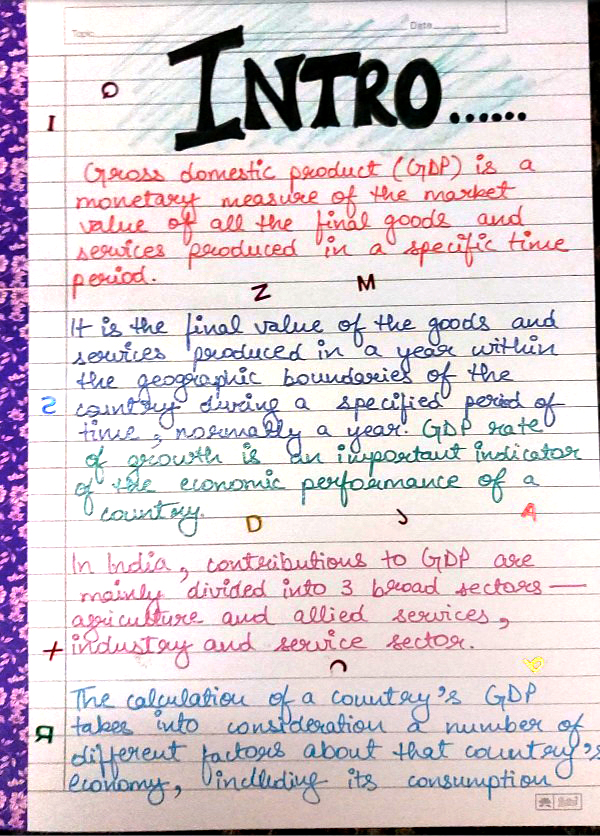 Topic Date
INTRO......
Gross domestic product (GDP) is a
monetary measure of the market
value of all the final goods and
services produced in a specific time
period.
Z M
It is the final value of the goods and
services produced in a year within
the geographic boundaries of the
country during a specified period of
time, normally a year. GDP rate
of growth is an important indicator
of the economic performance of a
country.
D A
In India, contributions to GDP are
mainly divided into 3 broad sectors —
agriculture and allied services,
industry and service sector.
The calculation of a country's GDP
Я takes into consideration a number of
different factors about that country's
economy, including its consumption